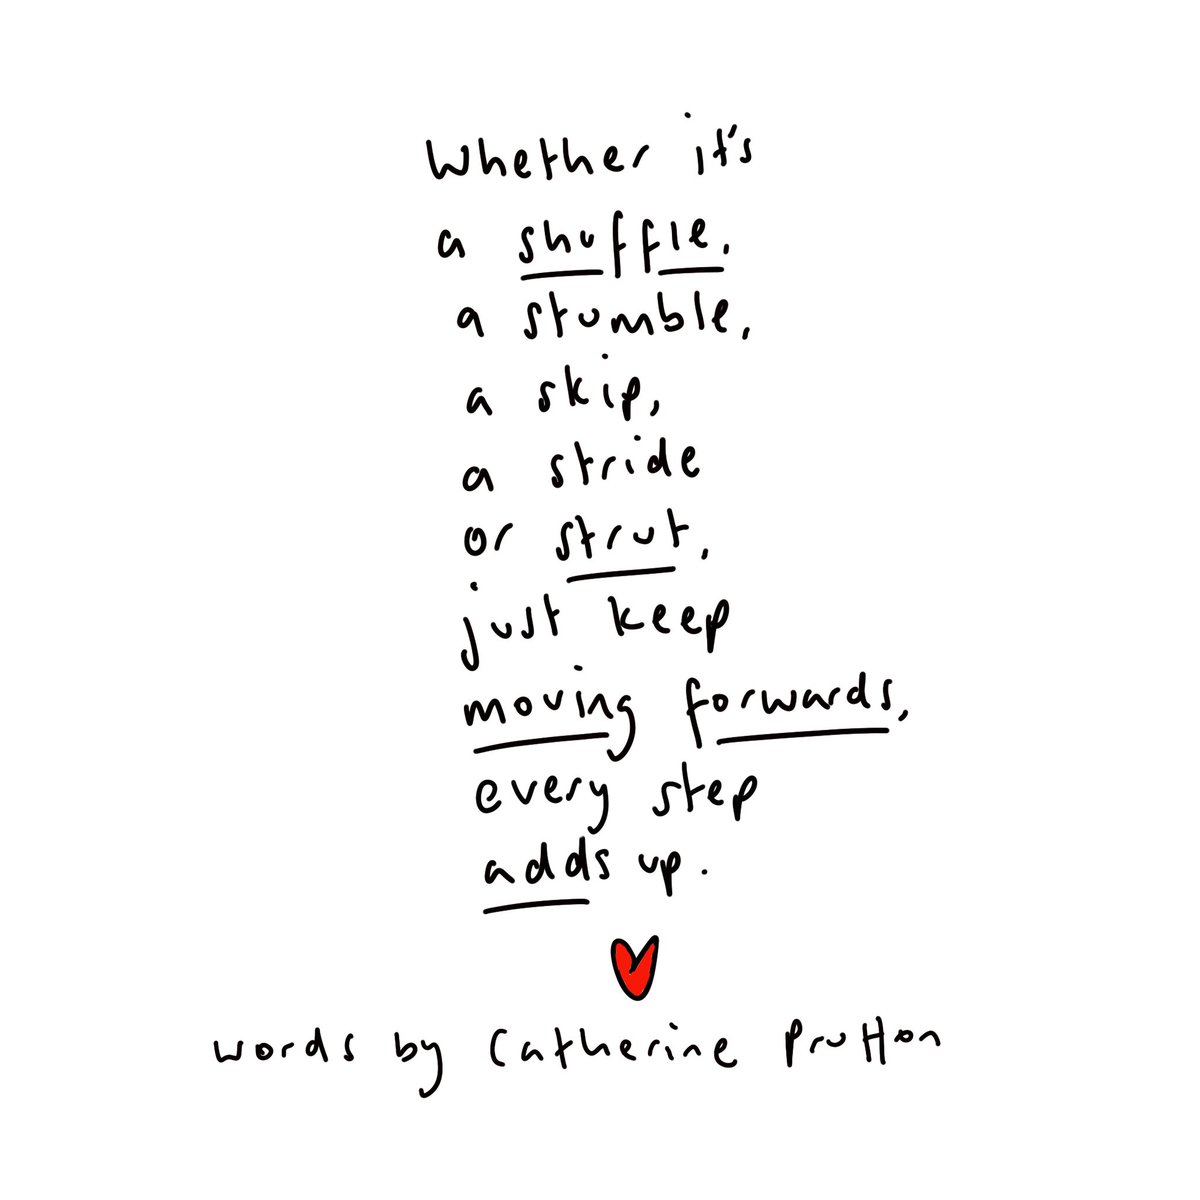 Whether it's
a shuffle,
a stumble,
a skip,
a stride
or strut,
just keep
moving forwards,
every step
adds up.
words by Catherine Prutton